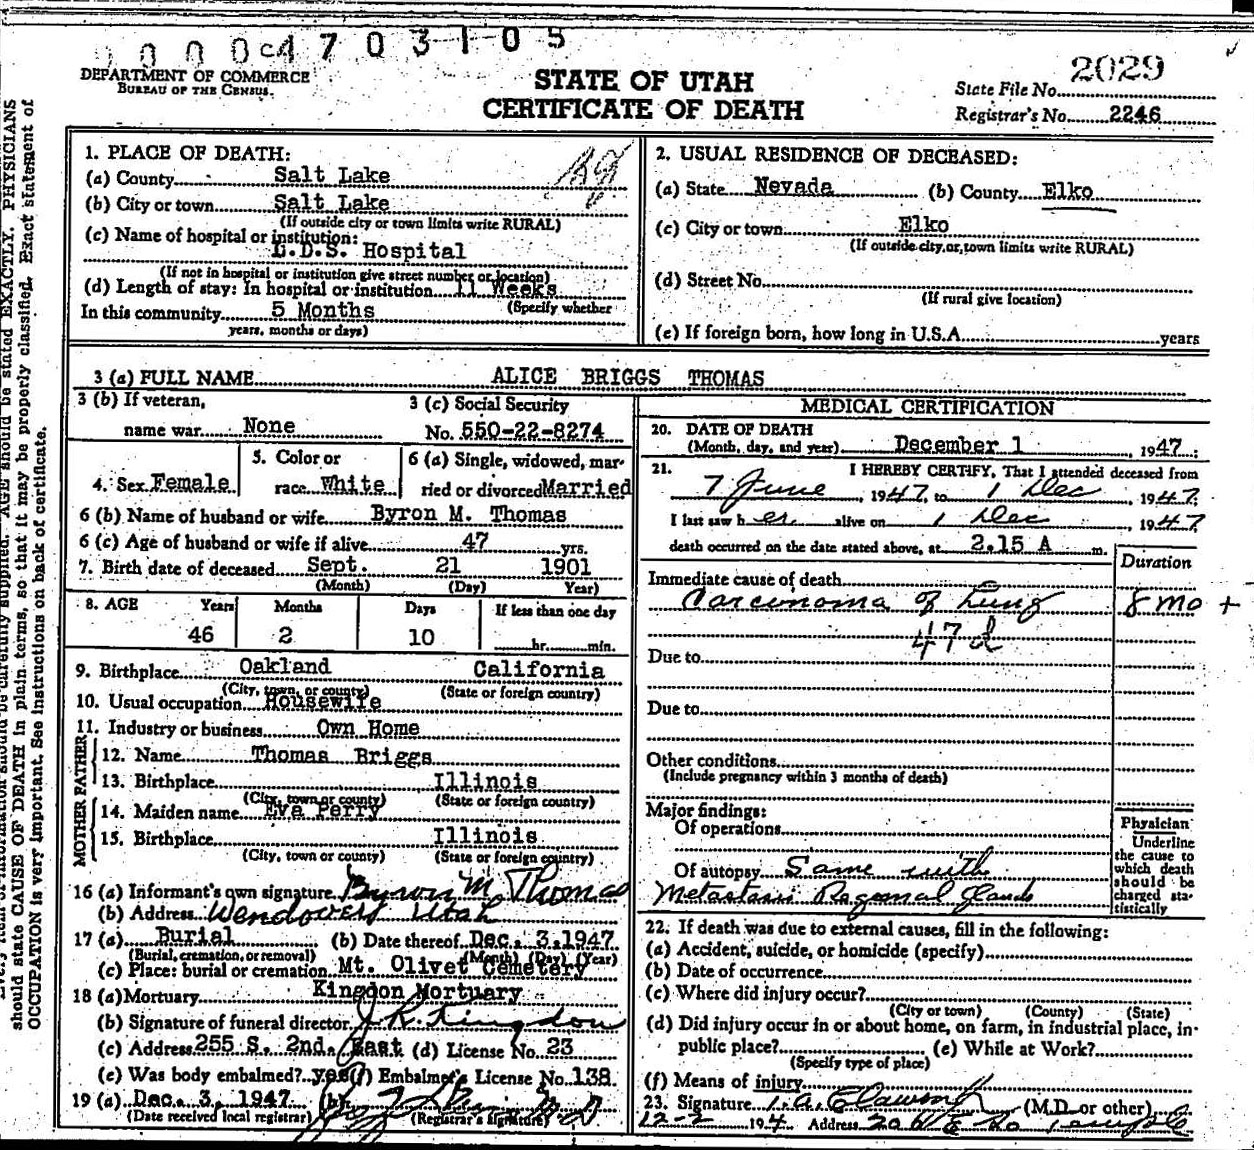 0 0 0 c4 7 0 3 1 0 5
DEPARTMENT OF COMMERCE
BUREAU OF THE CENSUS.
STATE OF UTAH
CERTIFICATE OF DEATH
State File No. 2029
Registrar's No. 2246
should state CAUSE OF DEATH in plain terms, so that it may be properly classified. Exact statement of
OCCUPATION is very important. See instructions on back of certificate.
1. PLACE OF DEATH:
(a) County Salt Lake
(b) City or town Salt Lake
(If outside city or town limits write RURAL)
(c) Name of hospital or institution:
L.D.S. Hospital
(If not in hospital or institution give street number or location)
(d) Length of stay: In hospital or institution 11 Weeks
(Specify whether
In this community 5 Months
years, months or days)
2. USUAL RESIDENCE OF DECEASED:
(a) State Nevada (b) County Elko
(c) City or town Elko
(If outside city or town limits write RURAL)
(d) Street No.
(If rural give location)
(e) If foreign born, how long in U.S.A. years
3 (a) FULL NAME ALICE BRIGGS THOMAS
3 (b) If veteran,
name war None
3 (c) Social Security
No. 550-22-8274
4. Sex Female
5. Color or
race White
6 (a) Single, widowed, mar-
ried or divorced Married
6 (b) Name of husband or wife Byron M. Thomas
6 (c) Age of husband or wife if alive 47 yrs.
7. Birth date of deceased Sept. 21 1901
(Month) (Day) Year)
8. AGE Years Months Days If less than one day
46 2 10 hr. min.
9. Birthplace Oakland California
(City, town, or county) (State or foreign country)
10. Usual occupation Housewife
11. Industry or business Own Home
FATHER
12. Name Thomas Briggs
13. Birthplace Illinois
(City, town or county) (State or foreign country)
MOTHER
14. Maiden name Eva Perry
15. Birthplace Illinois
(City, town or county) (State or foreign country)
16 (a) Informant's own signature Byron M. Thomas
(b) Address Wendover, Utah
17 (a) Burial (b) Date thereof Dec. 3, 1947
(Burial, cremation, or removal) (Month) (Day) (Year)
(c) Place: burial or cremation Mt. Olivet Cemetery
18 (a) Mortuary Kingdon Mortuary
(b) Signature of funeral director J. R. Kingdon
(c) Address 255 S. 2nd. East (d) License No. 23
(e) Was body embalmed? yes (f) Embalmer's License No. 138
19 (a) Dec. 3, 1947 (b)
(Date received local registrar) (Registrar's signature)
MEDICAL CERTIFICATION
20. DATE OF DEATH
(Month, day, and year) December 1, 1947;
21. I HEREBY CERTIFY, That I attended deceased from
7 June, 1947, to 1 Dec, 1947.
I last saw her alive on 1 Dec, 1947
death occurred on the date stated above, at 2.15 A m.
Duration
Immediate cause of death
Carcinoma of Lung 8 mo +
47 d
Due to
Due to
Other conditions
(Include pregnancy within 3 months of death)
Major findings:
Of operations
Of autopsy Same with
Metastasis Regional Glands
Physician
Underline
the cause to
which death
should be
charged sta-
tistically
22. If death was due to external causes, fill in the following:
(a) Accident, suicide, or homicide (specify)
(b) Date of occurrence
(c) Where did injury occur?
(City or town) (County) (State)
(d) Did injury occur in or about home, on farm, in industrial place, in-
public place? (e) While at Work?
(Specify type of place)
(f) Means of injury
23. Signature (M.D. or other)
12-2 194 Address 20 So Temple